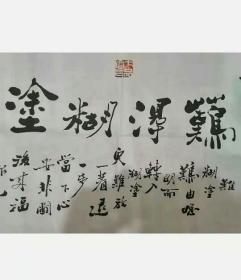 難得糊塗
難
糊塗
難由聰
明而
轉入
糊塗
更難放
一着退
一步
當下心
安非圖
後來福